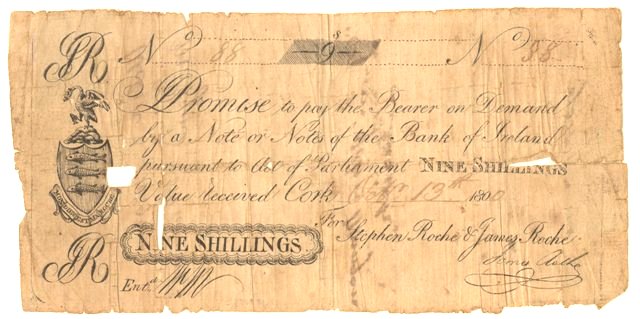 JR
No 88 9s No 88
I Promise to pay the Bearer on Demand
by a Note or Notes of the Bank of Ireland
pursuant to Act of Parliament NINE SHILLINGS
Value received Cork 13th 1800
For Stephen Roche & James Roche
NINE SHILLINGS
James Roche
JR
Entd